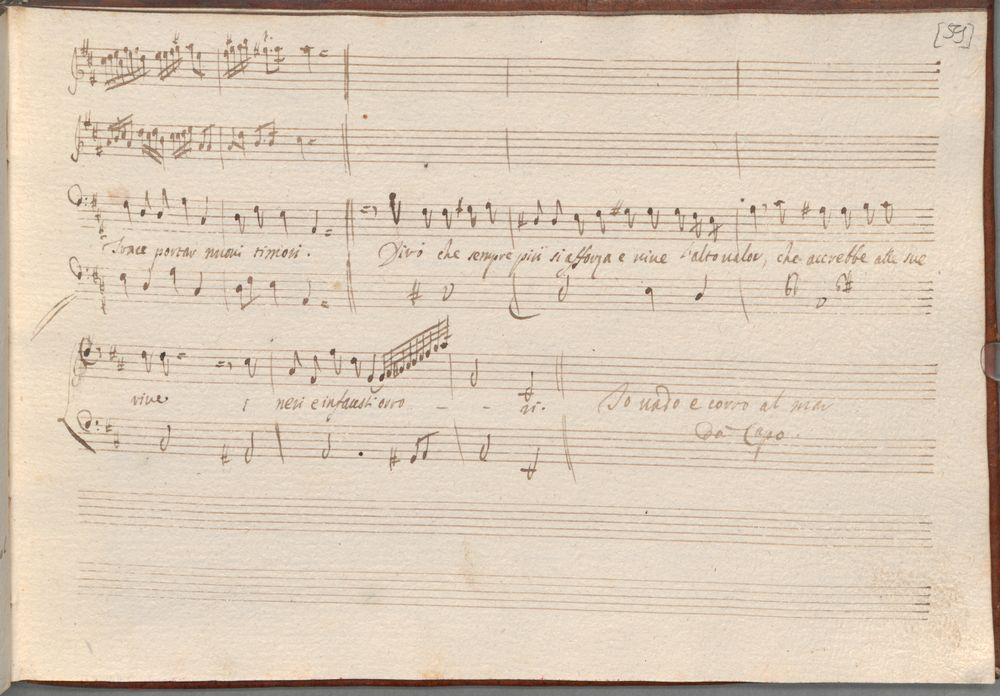 [59]
Trace portar nuovi timori. Dirò che sempre più si afforza e vive l'alto valor, che accrebbe alle sue
rive i neri e infausti orro - - ri. Io vado e corro al mar
Da Capo.